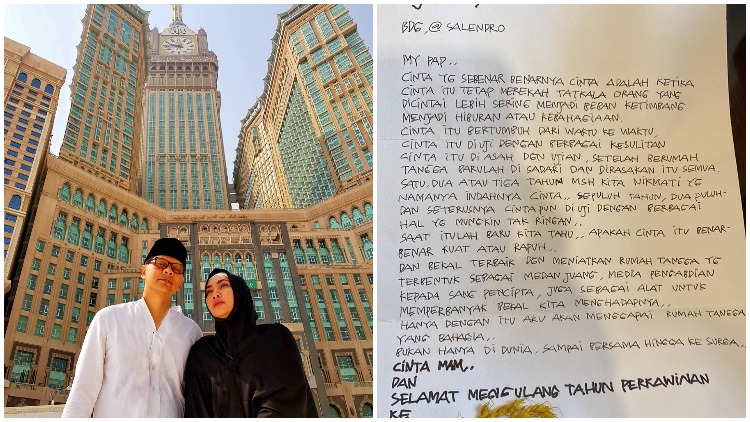 BDG, @ SALENDRO
MY PAP..
CINTA YG SEBENAR BENARNYA CINTA ADALAH KETIKA
CINTA ITU TETAP MEREKAH TATKALA ORANG YANG
DICINTAI LEBIH SERING MENJADI BEBAN KETIMBANG
MENJADI HIBURAN ATAU KEBAHAGIAAN.
CINTA ITU BERTUMBUH DARI WAKTU KE WAKTU,
CINTA ITU DIUJI DENGAN BERBAGAI KESULITAN
CINTA ITU DI ASAH DGN UJIAN, SETELAH BERUMAH
TANGGA BARULAH DI SADARI DAN DIRASAKAN ITU SEMUA.
SATU, DUA ATAU TIGA TAHUN MSH KITA NIKMATI YG
NAMANYA INDAHNYA CINTA.. SEPULUH TAHUN, DUA PULUH-
DAN SETERUSNYA CINTAPUN DI UJI DENGAN BERBAGAI
HAL YG MUNGKIN TAK RINGAN..
SAAT ITULAH BARU KITA TAHU.. APAKAH CINTA ITU BENAR-
BENAR KUAT ATAU RAPUH..
DAN BEKAL TERBAIK DGN MENIATKAN RUMAH TANGGA YG
TERBENTUK SEBAGAI MEDAN JUANG, MEDIA PENGABDIAN
KEPADA SANG PENCIPTA, JUGA SEBAGAI ALAT UNTUK
MEMPERBANYAK BEKAL KITA MENGHADAPNYA..
HANYA DENGAN ITU AKU AKAN MENGGAPAI RUMAH TANGGA
YANG BAHAGIA..
BUKAN HANYA DI DUNIA, SAMPAI BERSAMA HINGGA KE SURGA..
CINTA MAM..
DAN
SELAMAT MENGULANG TAHUN PERKAWINAN
KE